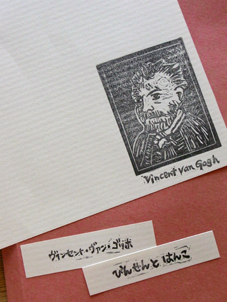 Vincent van Gogh
ヴィンセント・ヴァン・ゴッホ
びんせんと はんこ